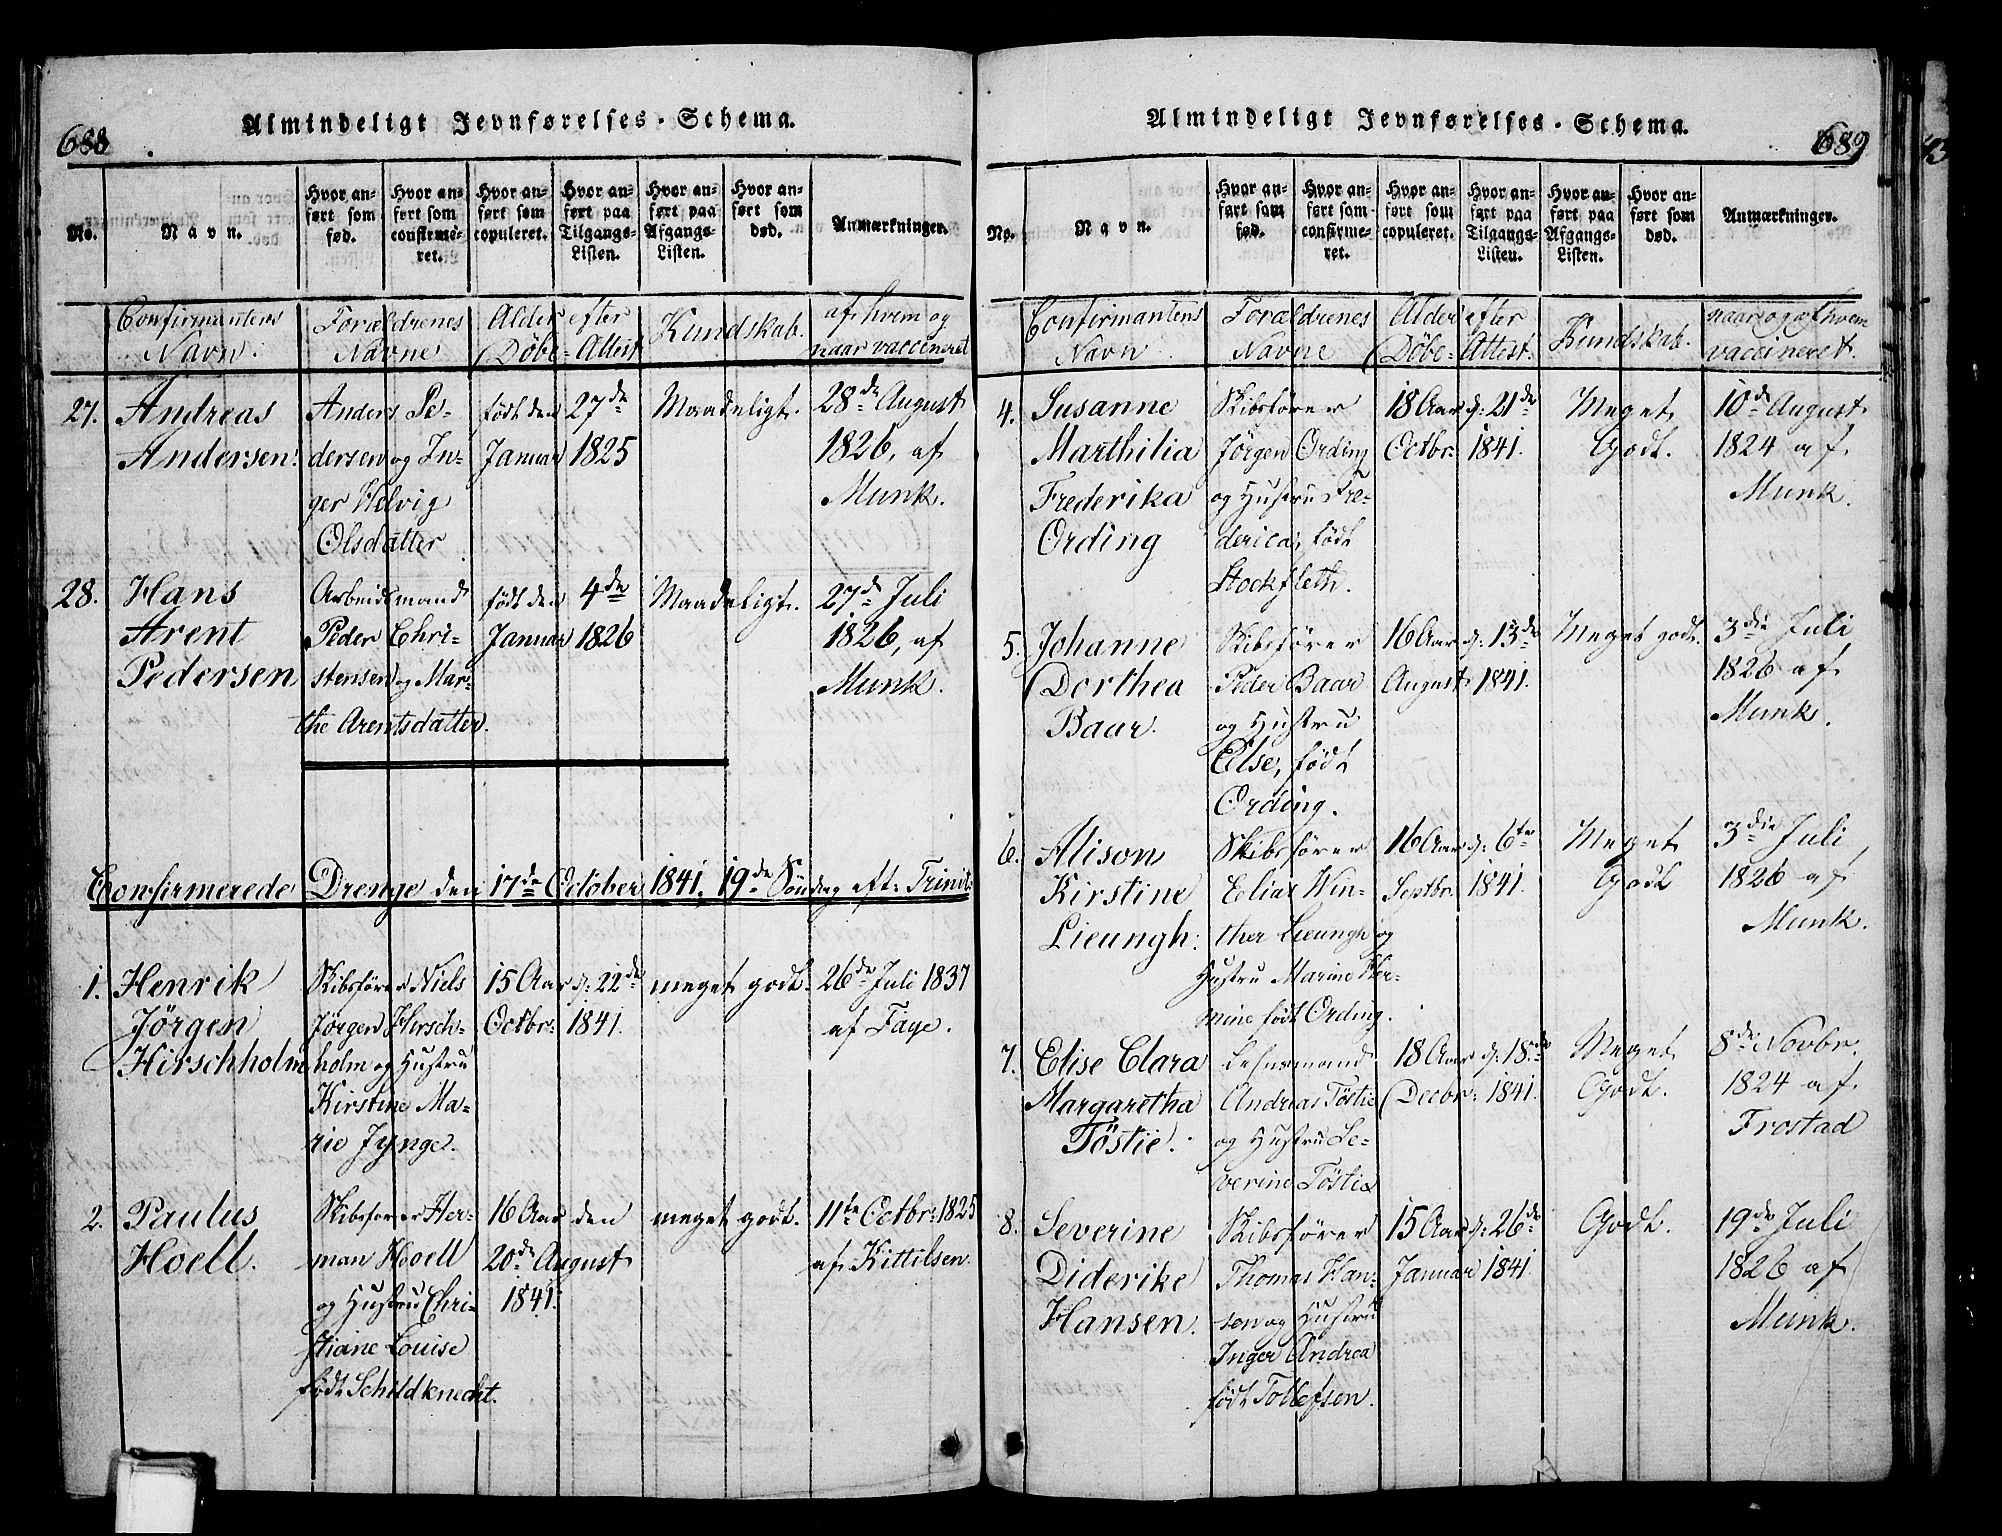 688
Almindeligt Jevnførelses-Schema.
No.
Navn.
Hvor an-
ført som
fød.
Hvor an-
ført som
confirme-
ret.
Hvor an-
ført som
copuleret.
Hvor an-
ført paa
Tilgangs-
Listen.
Hvor an-
ført paa
Afgangs-
Listen.
Hvor an-
ført som
død.
Anmærkninger.
Confirmantens
Navn.
Forældrenes
Navne
Alder efter
Döbe-Attest
Kundskab.
af hvem og
naar vaccineret
27.
Andreas
Andersen.
Anders Pe-
dersen og In-
ger Helvig
Olsdatter
födt den 27de
Januar 1825
Maadeligt.
28de August
1826, af
Munk.
28.
Hans
Arent
Pedersen
Arbeidsmand
Peder Chri-
stensen og Mar-
the Arentsdatter.
födt den 4de
Januar 1826
Maadeligt.
27de Juli
1826, af
Munk.
Confirmerede Drenge den 17de October 1841. 19de Söndag eft: Trinit.
1.
Henrik
Jörgen
Hirschholm
Skibsförer Niels
Jörgen Hirsch-
holm og Hustru
Kirstine Ma-
rie Jynge.
15 Aar d: 22de
Octbr: 1841.
meget godt.
26de Juli 1837
af Faye.
2.
Paulus
Hoell.
Skibsförer Her-
man Hoell
og Hustru Chri-
stiane Louise
födt Schildknecht.
16 Aar den
20de August
1841.
meget godt.
11te Octbr: 1825
af Kittilsen
689
Almindeligt Jevnførelses-Schema.
No.
Navn.
Hvor an-
ført som
fød.
Hvor an-
ført som
confirme-
ret.
Hvor an-
ført som
copuleret.
Hvor an-
ført paa
Tilgangs-
Listen.
Hvor an-
ført paa
Afgangs-
Listen.
Hvor an-
ført som
død.
Anmærkninger.
Confirmantens
Navn
Forældrenes
Navne
Alder efter
Döbe-Attest.
Kundskab.
naar og af hvem
vaccineret.
4.
Susanne
Marthilia
Frederika
Ording
Skibsförer
Jörgen Ording
og Hustru Fre-
derica, födt
Stockfleth.
18 Aar d: 21de
Octbr: 1841.
Meget
Godt.
10de August
1824 af
Munk.
5.
Johanne
Dorthea
Baar.
Skibsförer
Peder Baar
og Hustru
Else, födt
Ording.
16 Aar d: 13de
August 1841.
Meget godt.
3die Juli
1826 af
Munk.
6.
Alison
Kirstine
Lieungh.
Skibsförer
Elias Win-
ther Lieungh og
Hustru Marine Her-
mine födt Ording.
16 Aar d: 6te
Septbr: 1841.
Meget
Godt
3die Juli
1826 af
Munk.
7.
Elise Clara
Margaretha
Töstie.
Lehnsmand
Andreas Töstie
og Hustru Se-
verine Töstie
18 Aar d: 18de
Decbr: 1841.
Meget
Godt.
8de Novbr.
1824 af
Frostad
8.
Severine
Diderike
Hansen.
Skibsförer
Thomas Han-
sen og Hustru
Inger Andrea
födt Tollefsen.
15 Aar d: 26de
Januar 1841.
Godt.
19de Juli
1826 af
Munk.